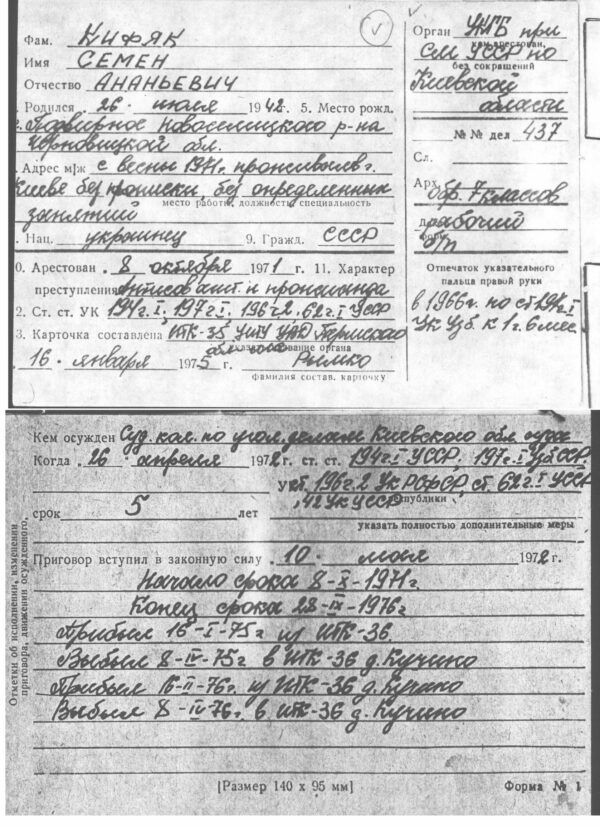 Фам. КИФЯК
Имя СЕМЕН
Отчество АНАНЬЕВИЧ
. Родился . 26 . июля 1942г. 5. Место рожд.
с. Подвирное Новоселицкого р-на
Черновицкой обл.
. Адрес м/ж с весны 1971г. проживал в г.
Киеве без прописки, без определенных
занятий
место работы, должность, специальность
. Нац. украинец 9. Гражд. СССР
0. Арестован . 8 октября 1971 г. 11. Характер
преступления Антисов. агит. и пропаганда
2. Ст. ст. УК 194 ч. I, 197 ч. I, 196 ч. 2, 62 ч. I УССР
3. Карточка составлена ИТК-35 УИТУ УВД Пермского
наименование органа
16 . января 1975 г. Рымко
фамилия состав. карточку
Орган УКГБ при
кем арестован,
СМ УССР по
без сокращений
Киевской
области
№№ дел 437
Сл.
Арх.
обр. 7 классов
рабочий
б/п
Отпечаток указательного
пальца правой руки
в 1966г. по ст 194 ч. I
УК Узб. к 1 г. 6 мес.
Кем осужден Суд. кол. по угол. делам Киевского обл. суда
Когда . 26 . апреля 1972г. ст. ст. 194 ч. I УССР, 197 ч. I УзбССР
ст. 196 ч. 2 УК РСФСР, ст. 62 ч. I УССР
, 42 УК УССР республики
срок 5 лет
указать полностью дополнительные меры
Приговор вступил в законную силу . 10 . мая 1972г.
Начало срока 8-X-1971г.
Конец срока 28-IX-1976г.
Прибыл 16-I-75г из ИТК-36.
Выбыл 8-IV-75г в ИТК-36 д. Кучино
Прибыл 16-II-76г. из ИТК-36 д. Кучино
Выбыл 8-IV-76г. в ИТК-36 д. Кучино
Отметки об исполнении, изменении
приговора, движении осужденного,
[Размер 140 х 95 мм] Форма № 1